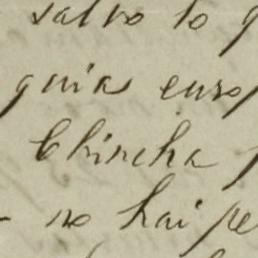 salvo lo q
guias euro
Chincha
no hai pe